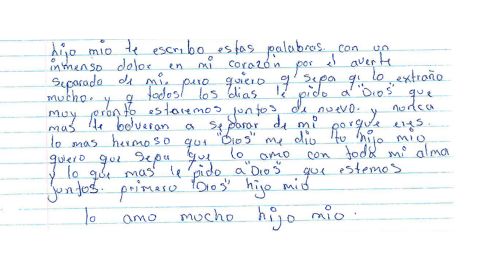 hijo mio te escribo estas palabras con un
inmenso dolor en mi corazón por el averte
separado de mi, pero quiero q sepa q lo extraño
mucho. y q todos los dias le pido a "Dios" que
muy pronto estaremos juntos de nuevo. y nunca
mas te bolveran a separar de mi porque eres.
lo mas hermoso que "Dios" me dio tu hijo mio
quiero que sepa que lo amo con toda mi alma
y lo que mas le pido a "Dios" que estemos
juntos. primero "Dios" hijo mio
lo amo mucho hijo mio.